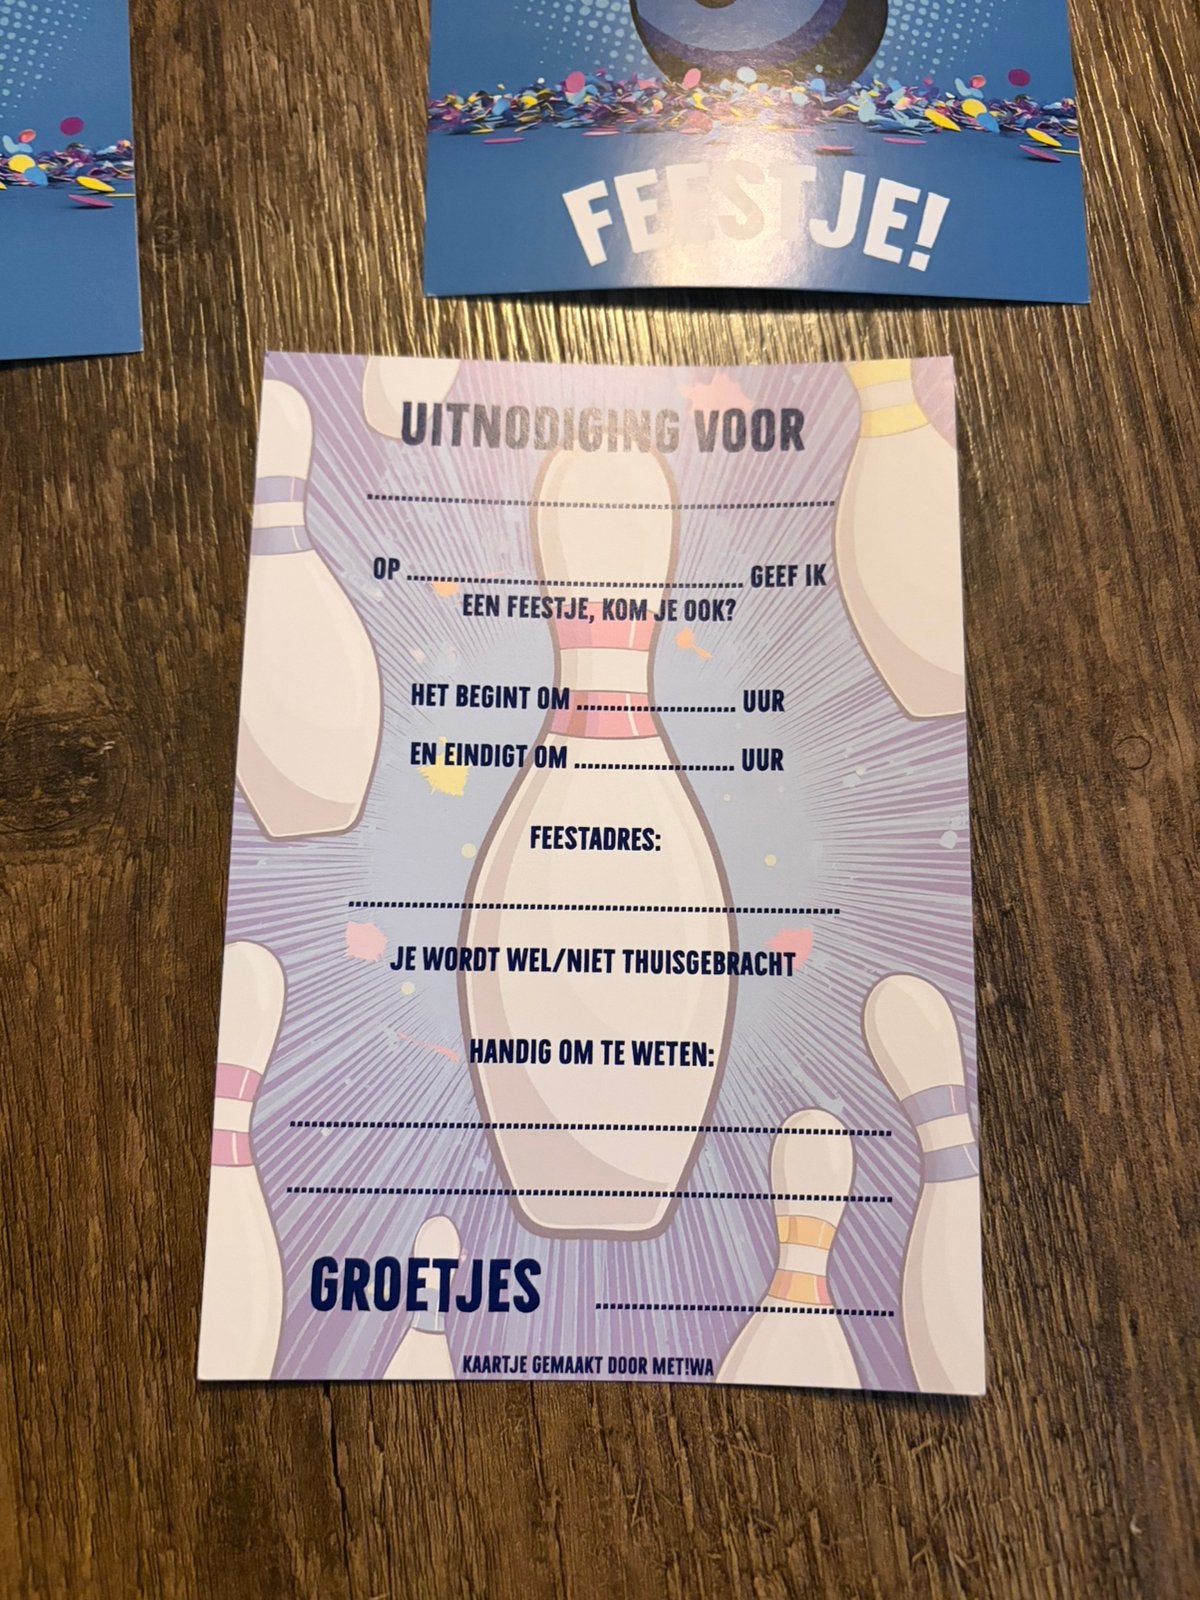 FEESTJE!
UITNODIGING VOOR
OP ........................................ GEEF IK
EEN FEESTJE, KOM JE OOK?
HET BEGINT OM ........................ UUR
EN EINDIGT OM ........................ UUR
FEESTADRES:
JE WORDT WEL/NIET THUISGEBRACHT
HANDIG OM TE WETEN:
GROETJES ........................................
KAARTJE GEMAAKT DOOR MET!WA